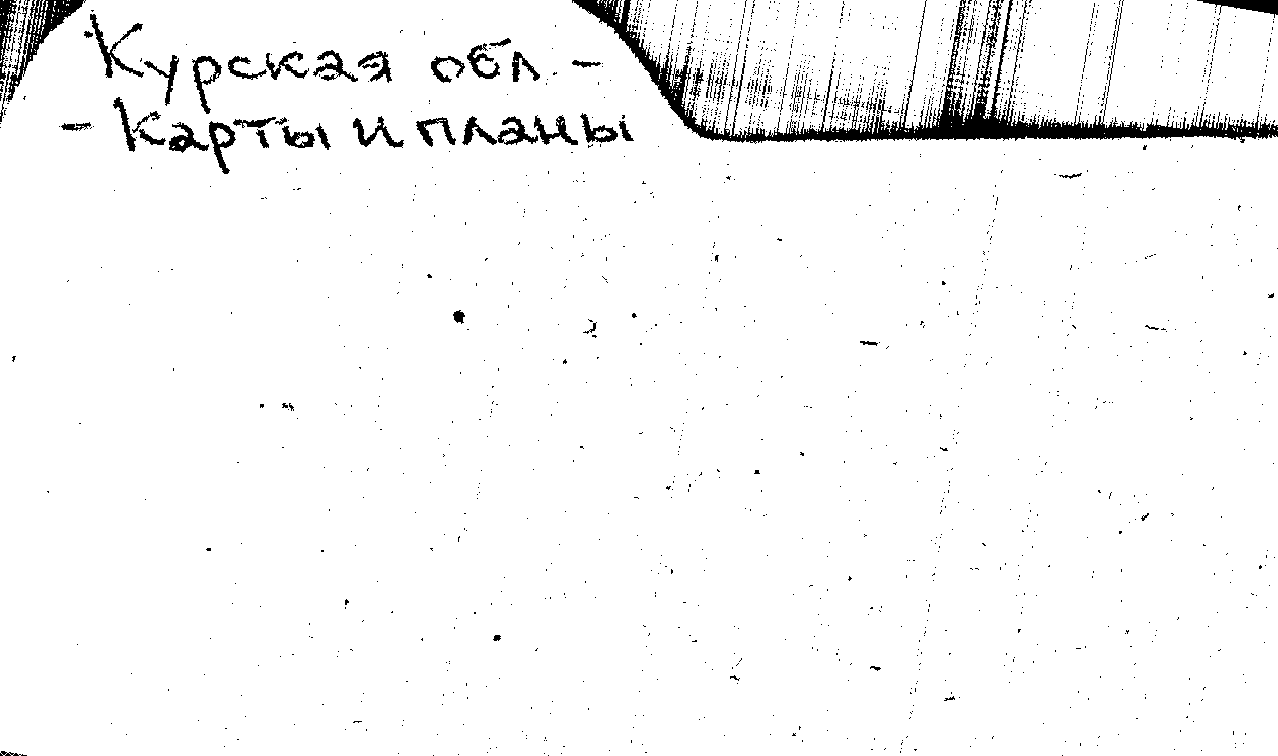 Курская обл -
- Карты и планы